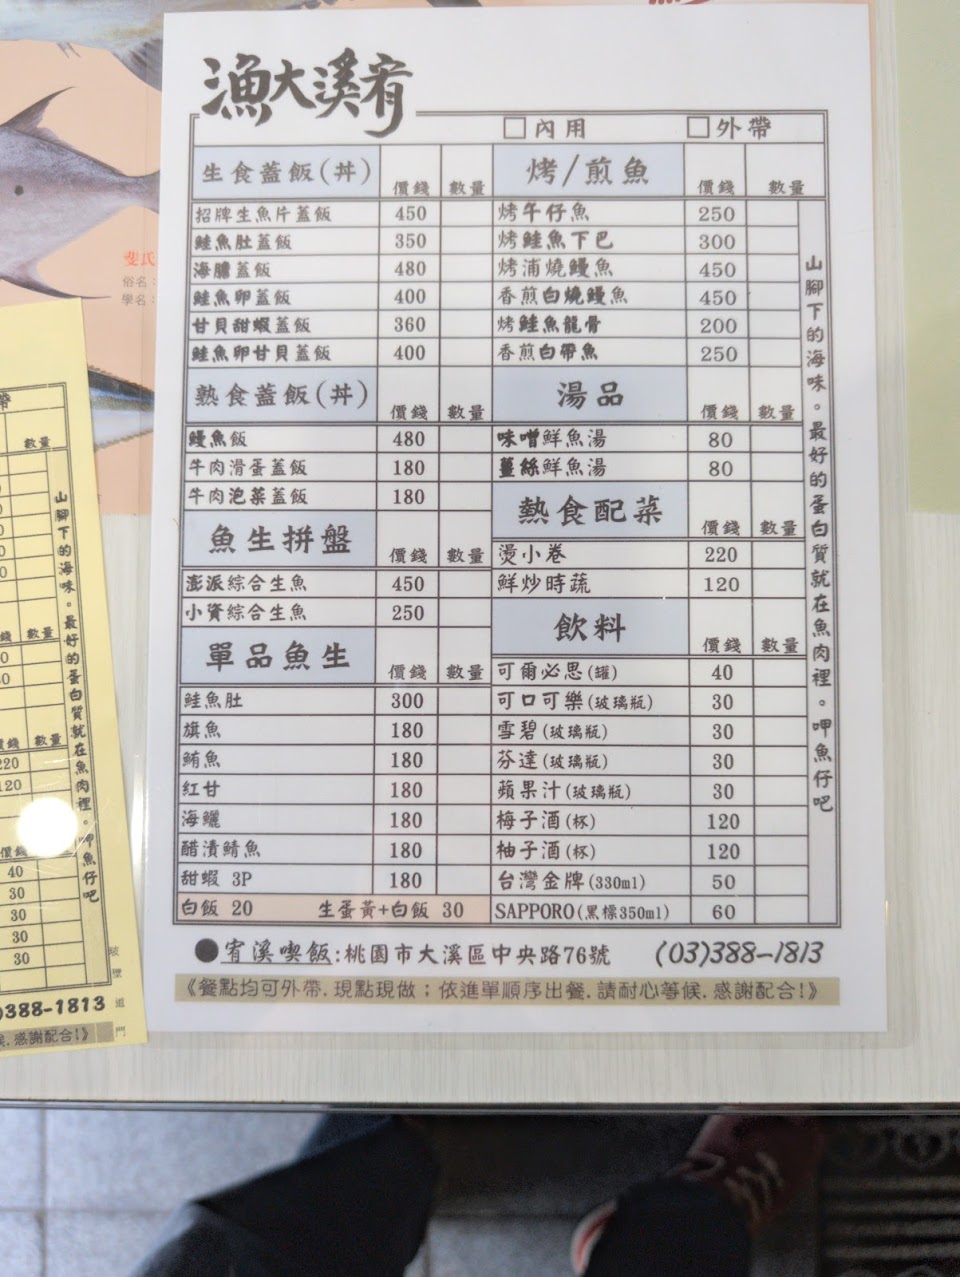 漁大溪宥
□內用 □外帶
生食蓋飯(丼) 價錢 數量
招牌生魚片蓋飯 450
鮭魚肚蓋飯 350
海膽蓋飯 480
鮭魚卵蓋飯 400
甘貝甜蝦蓋飯 360
鮭魚卵甘貝蓋飯 400
熟食蓋飯(丼) 價錢 數量
鰻魚飯 480
牛肉滑蛋蓋飯 180
牛肉泡菜蓋飯 180
魚生拼盤 價錢 數量
澎派綜合生魚 450
小資綜合生魚 250
單品魚生 價錢 數量
鮭魚肚 300
旗魚 180
鮪魚 180
紅甘 180
海鱺 180
醋漬鯖魚 180
甜蝦 3P 180
白飯 20 生蛋黃+白飯 30
烤/煎魚 價錢 數量
烤午仔魚 250
烤鮭魚下巴 300
烤浦燒鰻魚 450
香煎白燒鰻魚 450
烤鮭魚龍骨 200
香煎白帶魚 250
湯品 價錢 數量
味噌鮮魚湯 80
薑絲鮮魚湯 80
熱食配菜 價錢 數量
燙小卷 220
鮮炒時蔬 120
飲料 價錢 數量
可爾必思(罐) 40
可口可樂(玻璃瓶) 30
雪碧(玻璃瓶) 30
芬達(玻璃瓶) 30
蘋果汁(玻璃瓶) 30
梅子酒(杯) 120
柚子酒(杯) 120
台灣金牌(330ml) 50
SAPPORO(黑標350ml) 60
山腳下的海味。最好的蛋白質就在魚肉裡。呷魚仔吧
●宥溪喫飯:桃園市大溪區中央路76號 (03)388-1813
《餐點均可外帶.現點現做;依進單順序出餐.請耐心等候.感謝配合!》
斐氏
俗名:
學名:
帶
數量
山腳下的海味。最好的蛋白質就在魚肉裡。呷魚仔吧
錢 數量
價錢 數量
220
120
價錢
40
30
30
30
30
)388-1813
候.感謝配合!》
道
門